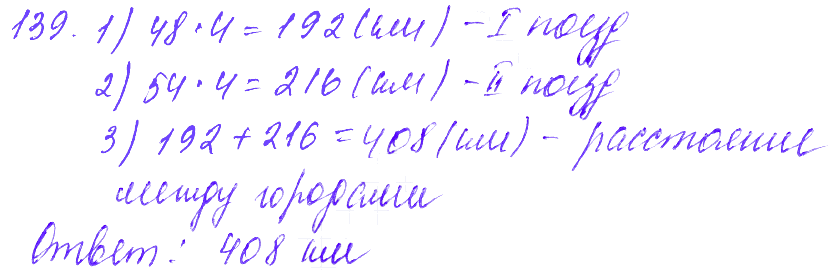 139. 1) 48·4 = 192 (км) – I поезд
2) 54·4 = 216 (км) – II поезд
3) 192 + 216 = 408 (км) – расстояние
между городами
Ответ: 408 км